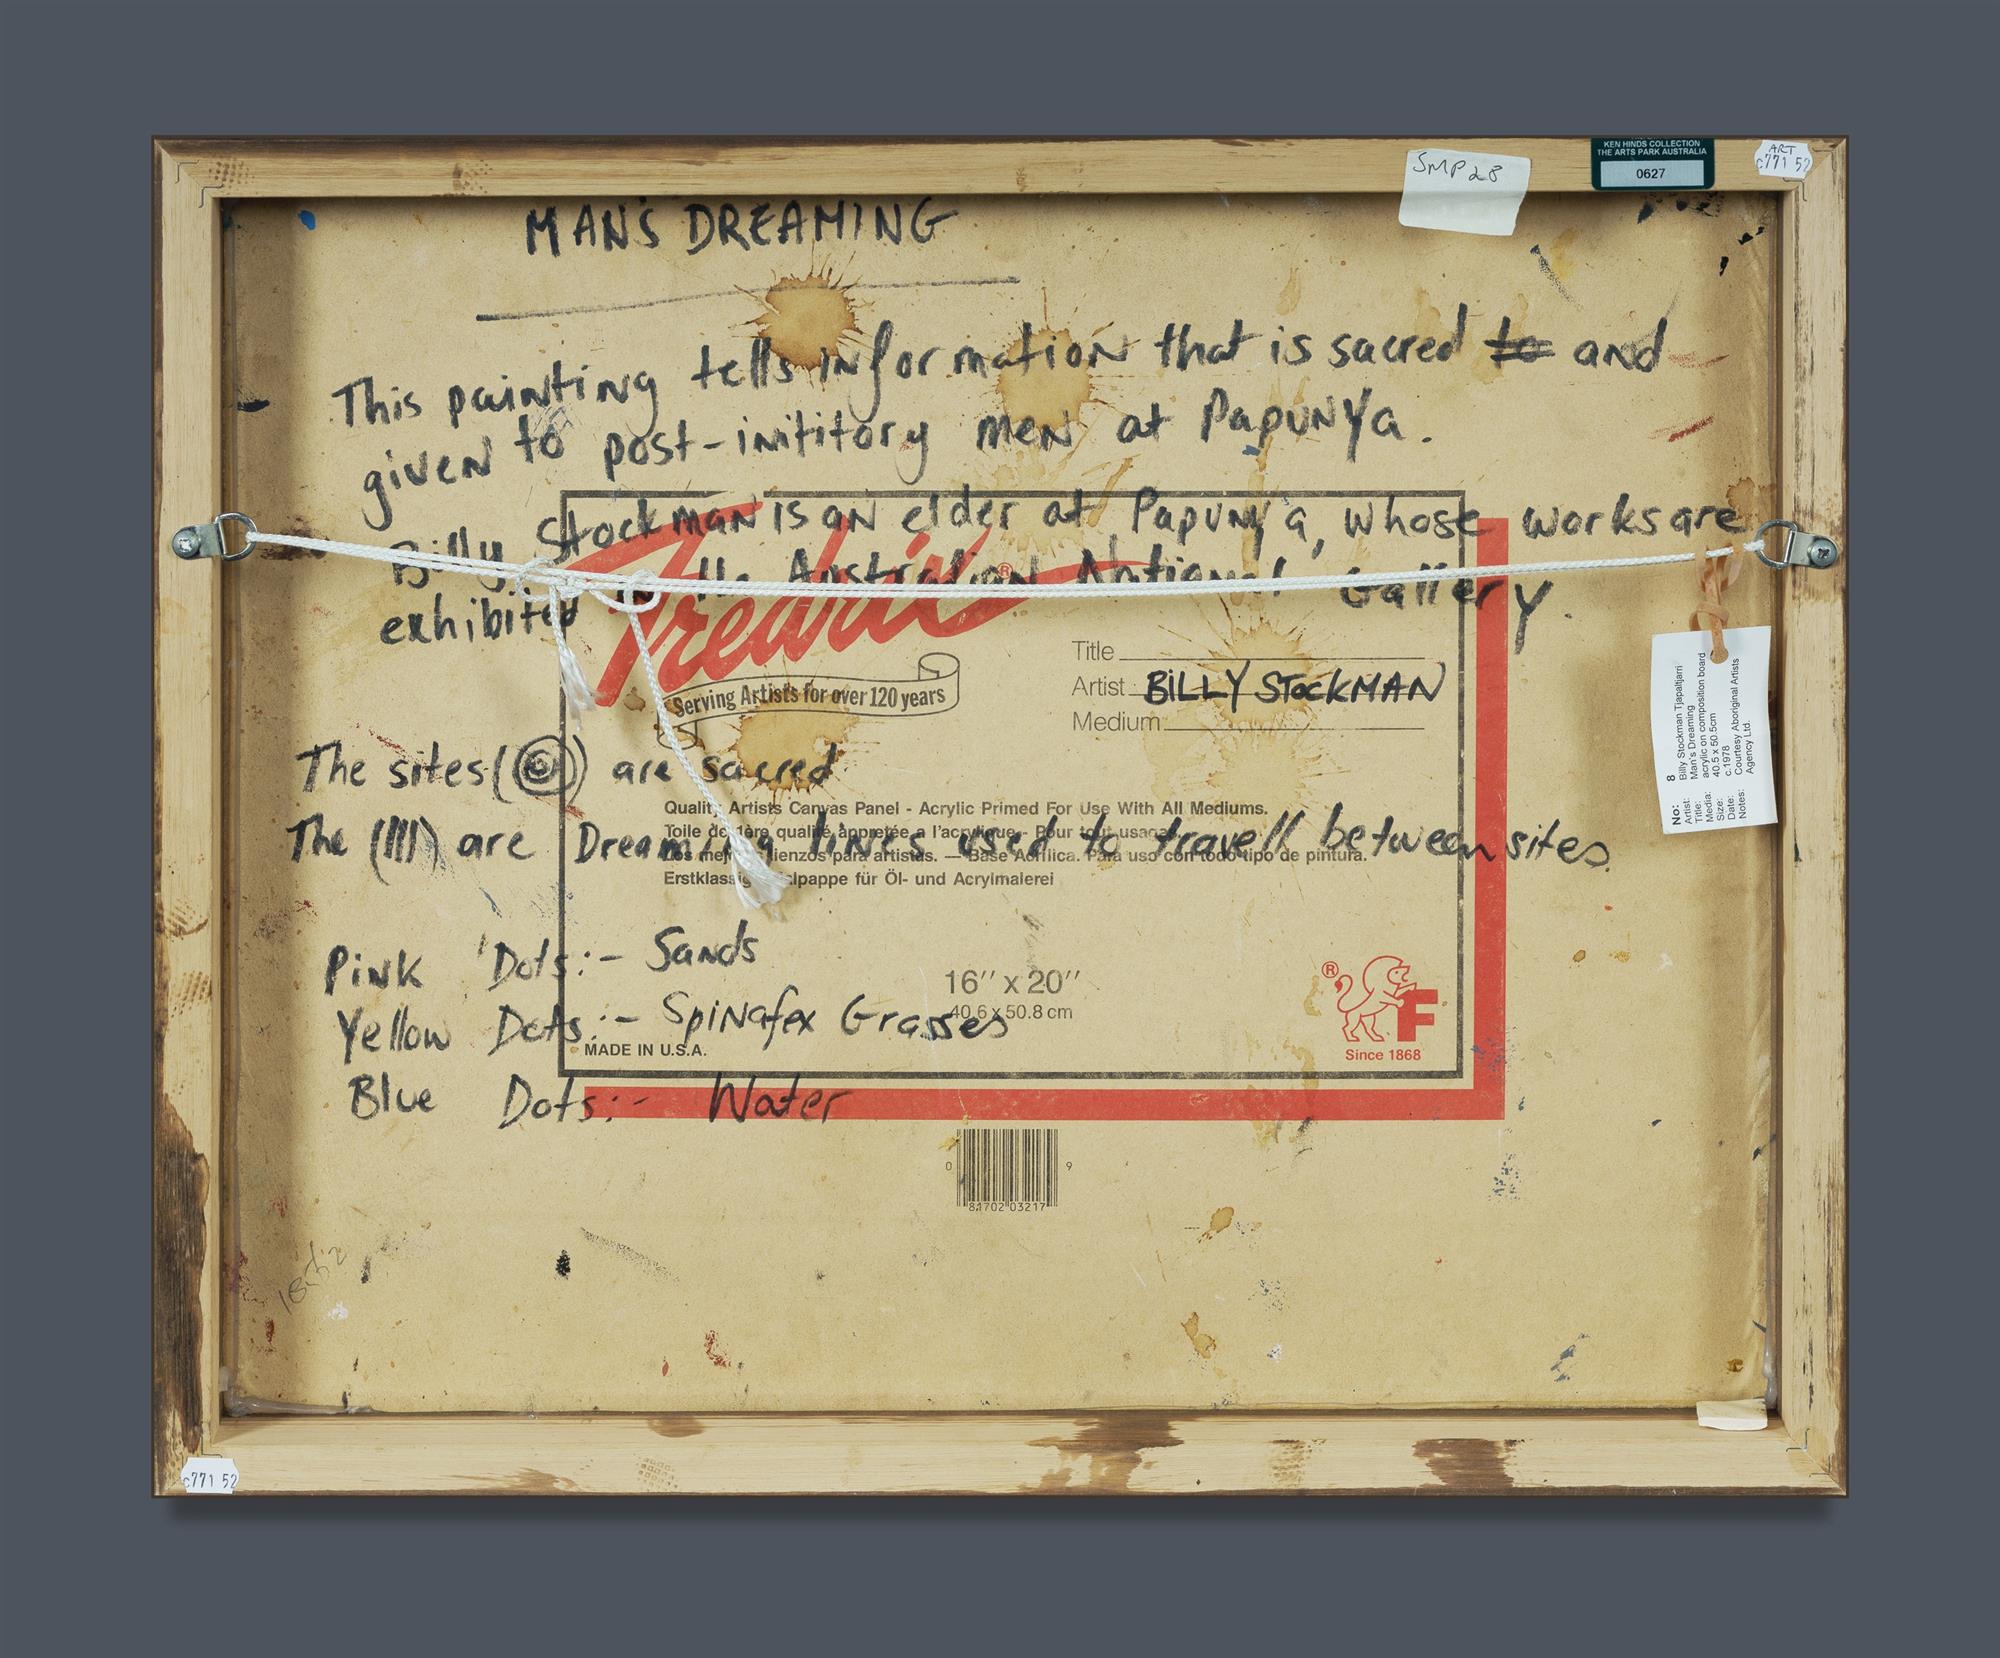 KEN HINDS COLLECTION
THE ARTS PARK AUSTRALIA
0627
SMP28
ART
c771 52
MAN'S DREAMING
This painting tells information that is sacred to and
given to post-inititory men at Papunya.
Billy Stockman is an elder at Papunya, whose works are
exhibited in the Australian National Gallery.
Fredrix®
Serving Artists for over 120 years
Title
Artist BILLY STOCKMAN
Medium
The sites (◎) are sacred
The (|||) are Dreaming lines used to travell between sites.
Quality Artists Canvas Panel - Acrylic Primed For Use With All Mediums.
Toile de 1ère qualité appretée a l'acrylique - Pour tout usage.
Los mejores lienzos para artistas. — Base Acrílica. Para uso con todo tipo de pintura.
Erstklassige Malpappe für Öl- und Acrylmalerei
Pink Dots:- Sands
Yellow Dots:- Spinafex Grasses
Blue Dots:- Water
16" x 20"
40.6 x 50.8 cm
MADE IN U.S.A.
® F
Since 1868
0 81702 03217 9
No: 8
Artist: Billy Stockman Tjapaltjarri
Title: Man's Dreaming
Media: acrylic on composition board
Size: 40.5 x 50.5cm
Date: c.1978
Notes: Courtesy Aboriginal Artists
Agency Ltd.
c771 52